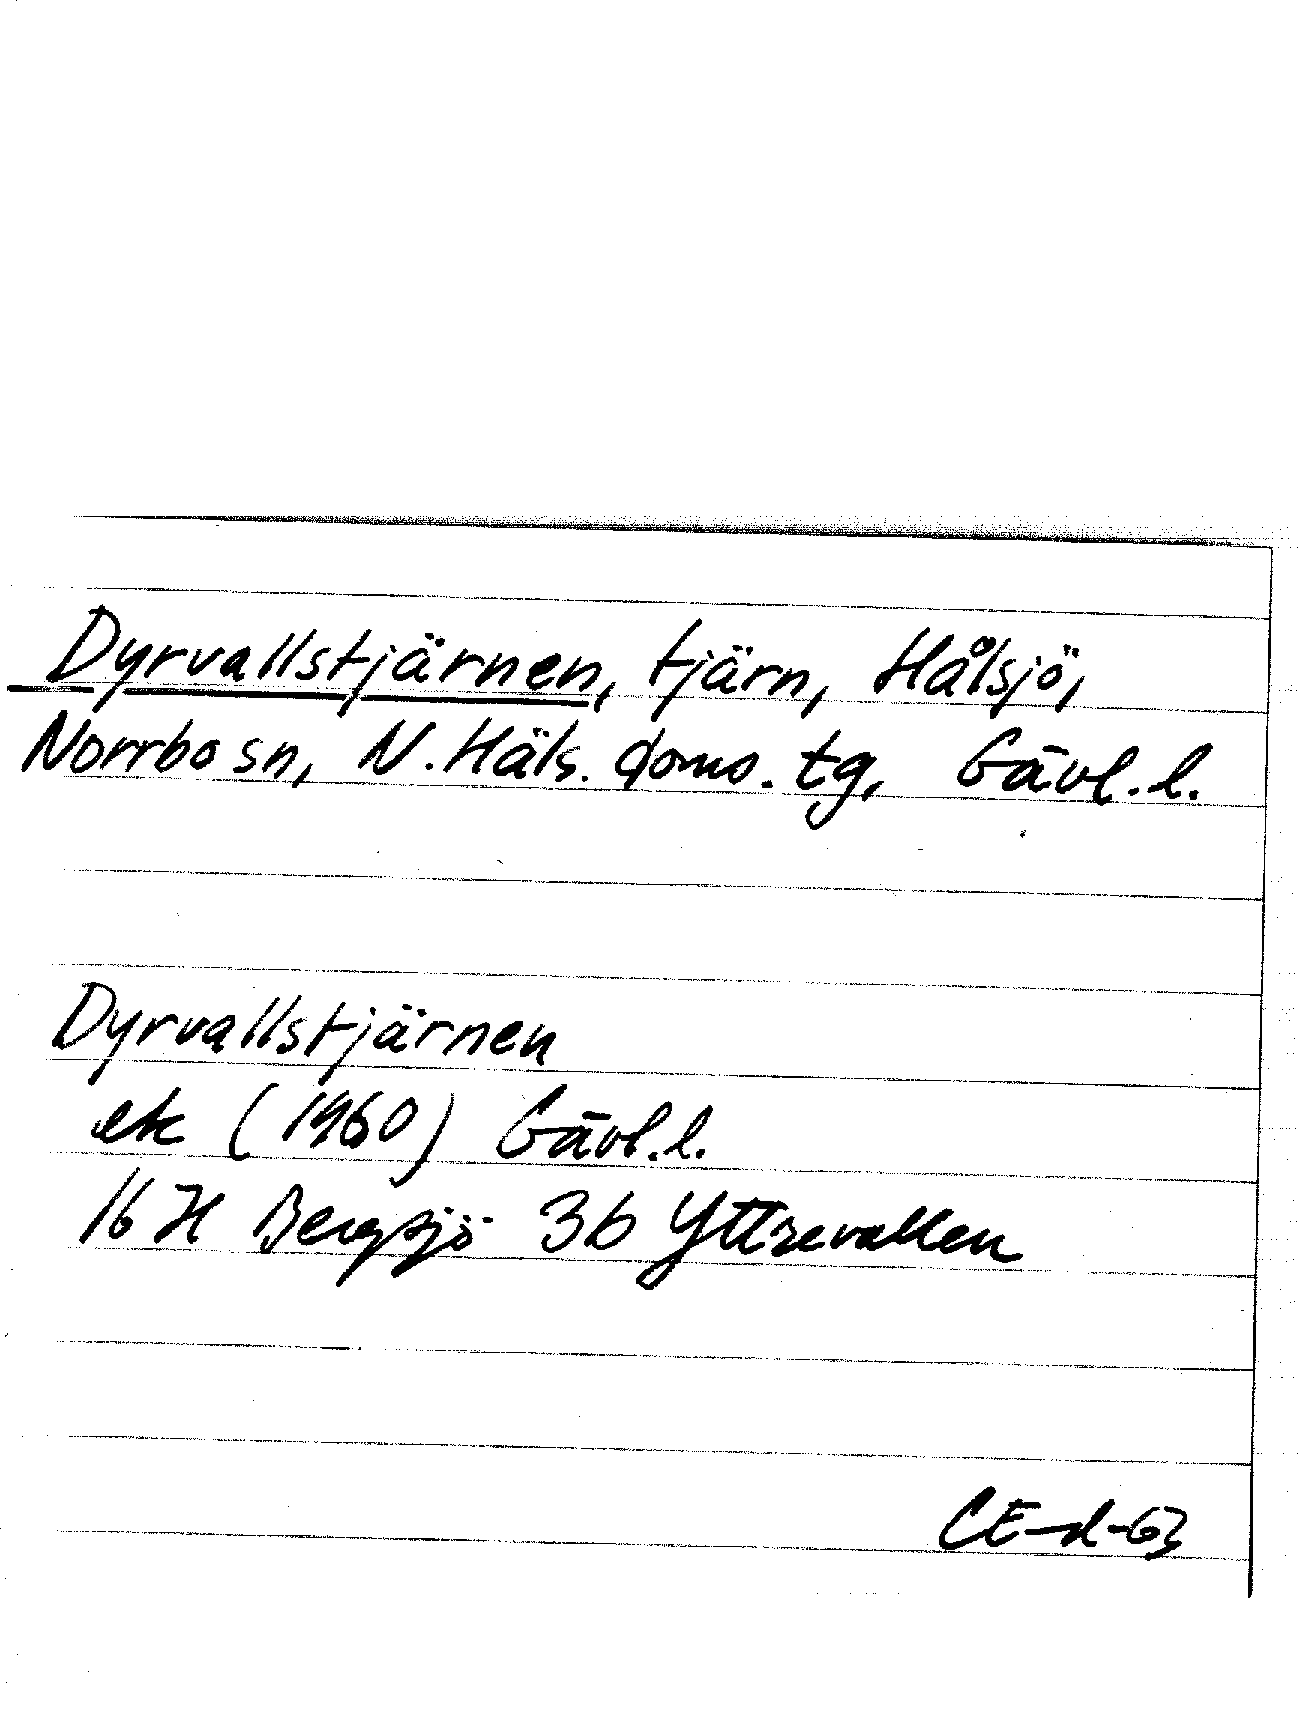 Dyrvallstjärnen, tjärn, Hålsjö,
Norrbo sn, N. Häls. doms. tg, Gävl. l.
Dyrvallstjärnen
ek (1960) Gävl. l.
16 H Bergsjö 3b Yttrevallen
CE-d-63